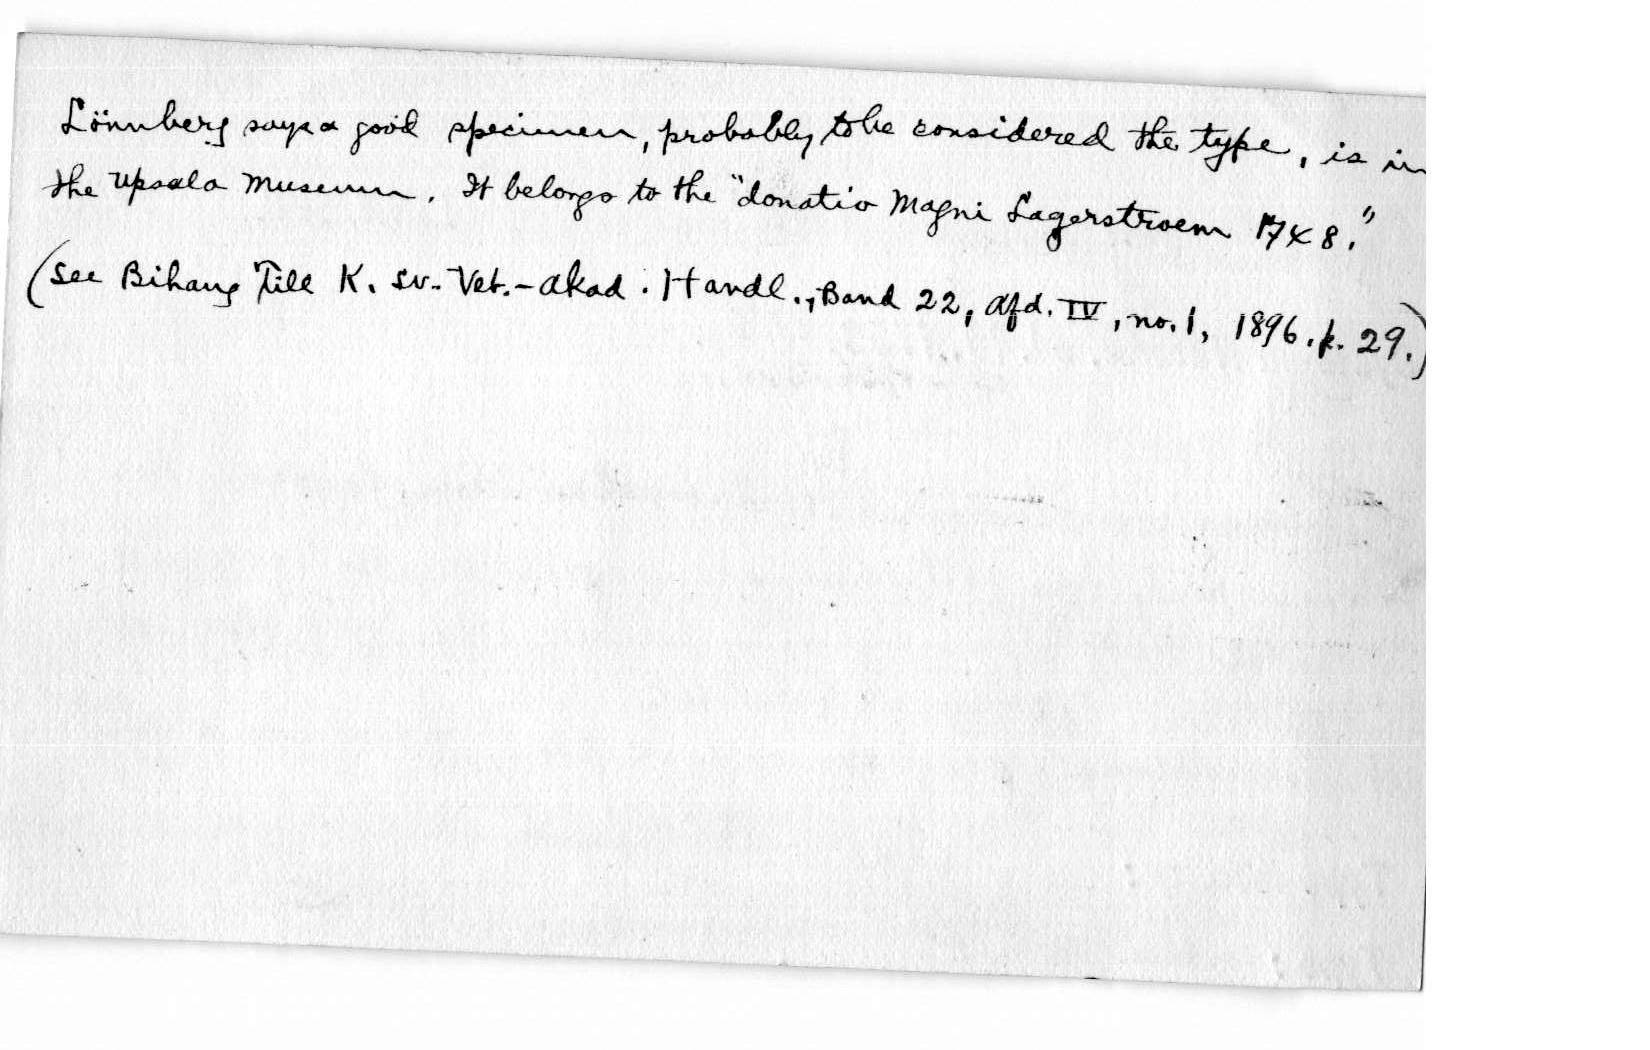 Lönnberg says a good specimen, probably to be considered the type, is in
the Upsala Museum. It belongs to the "donatio Magni Lagerstroem 1748."
(See Bihang Till K. Sv. Vet.-Akad. Handl., Band 22, Afd. IV, no. 1, 1896. p. 29.)